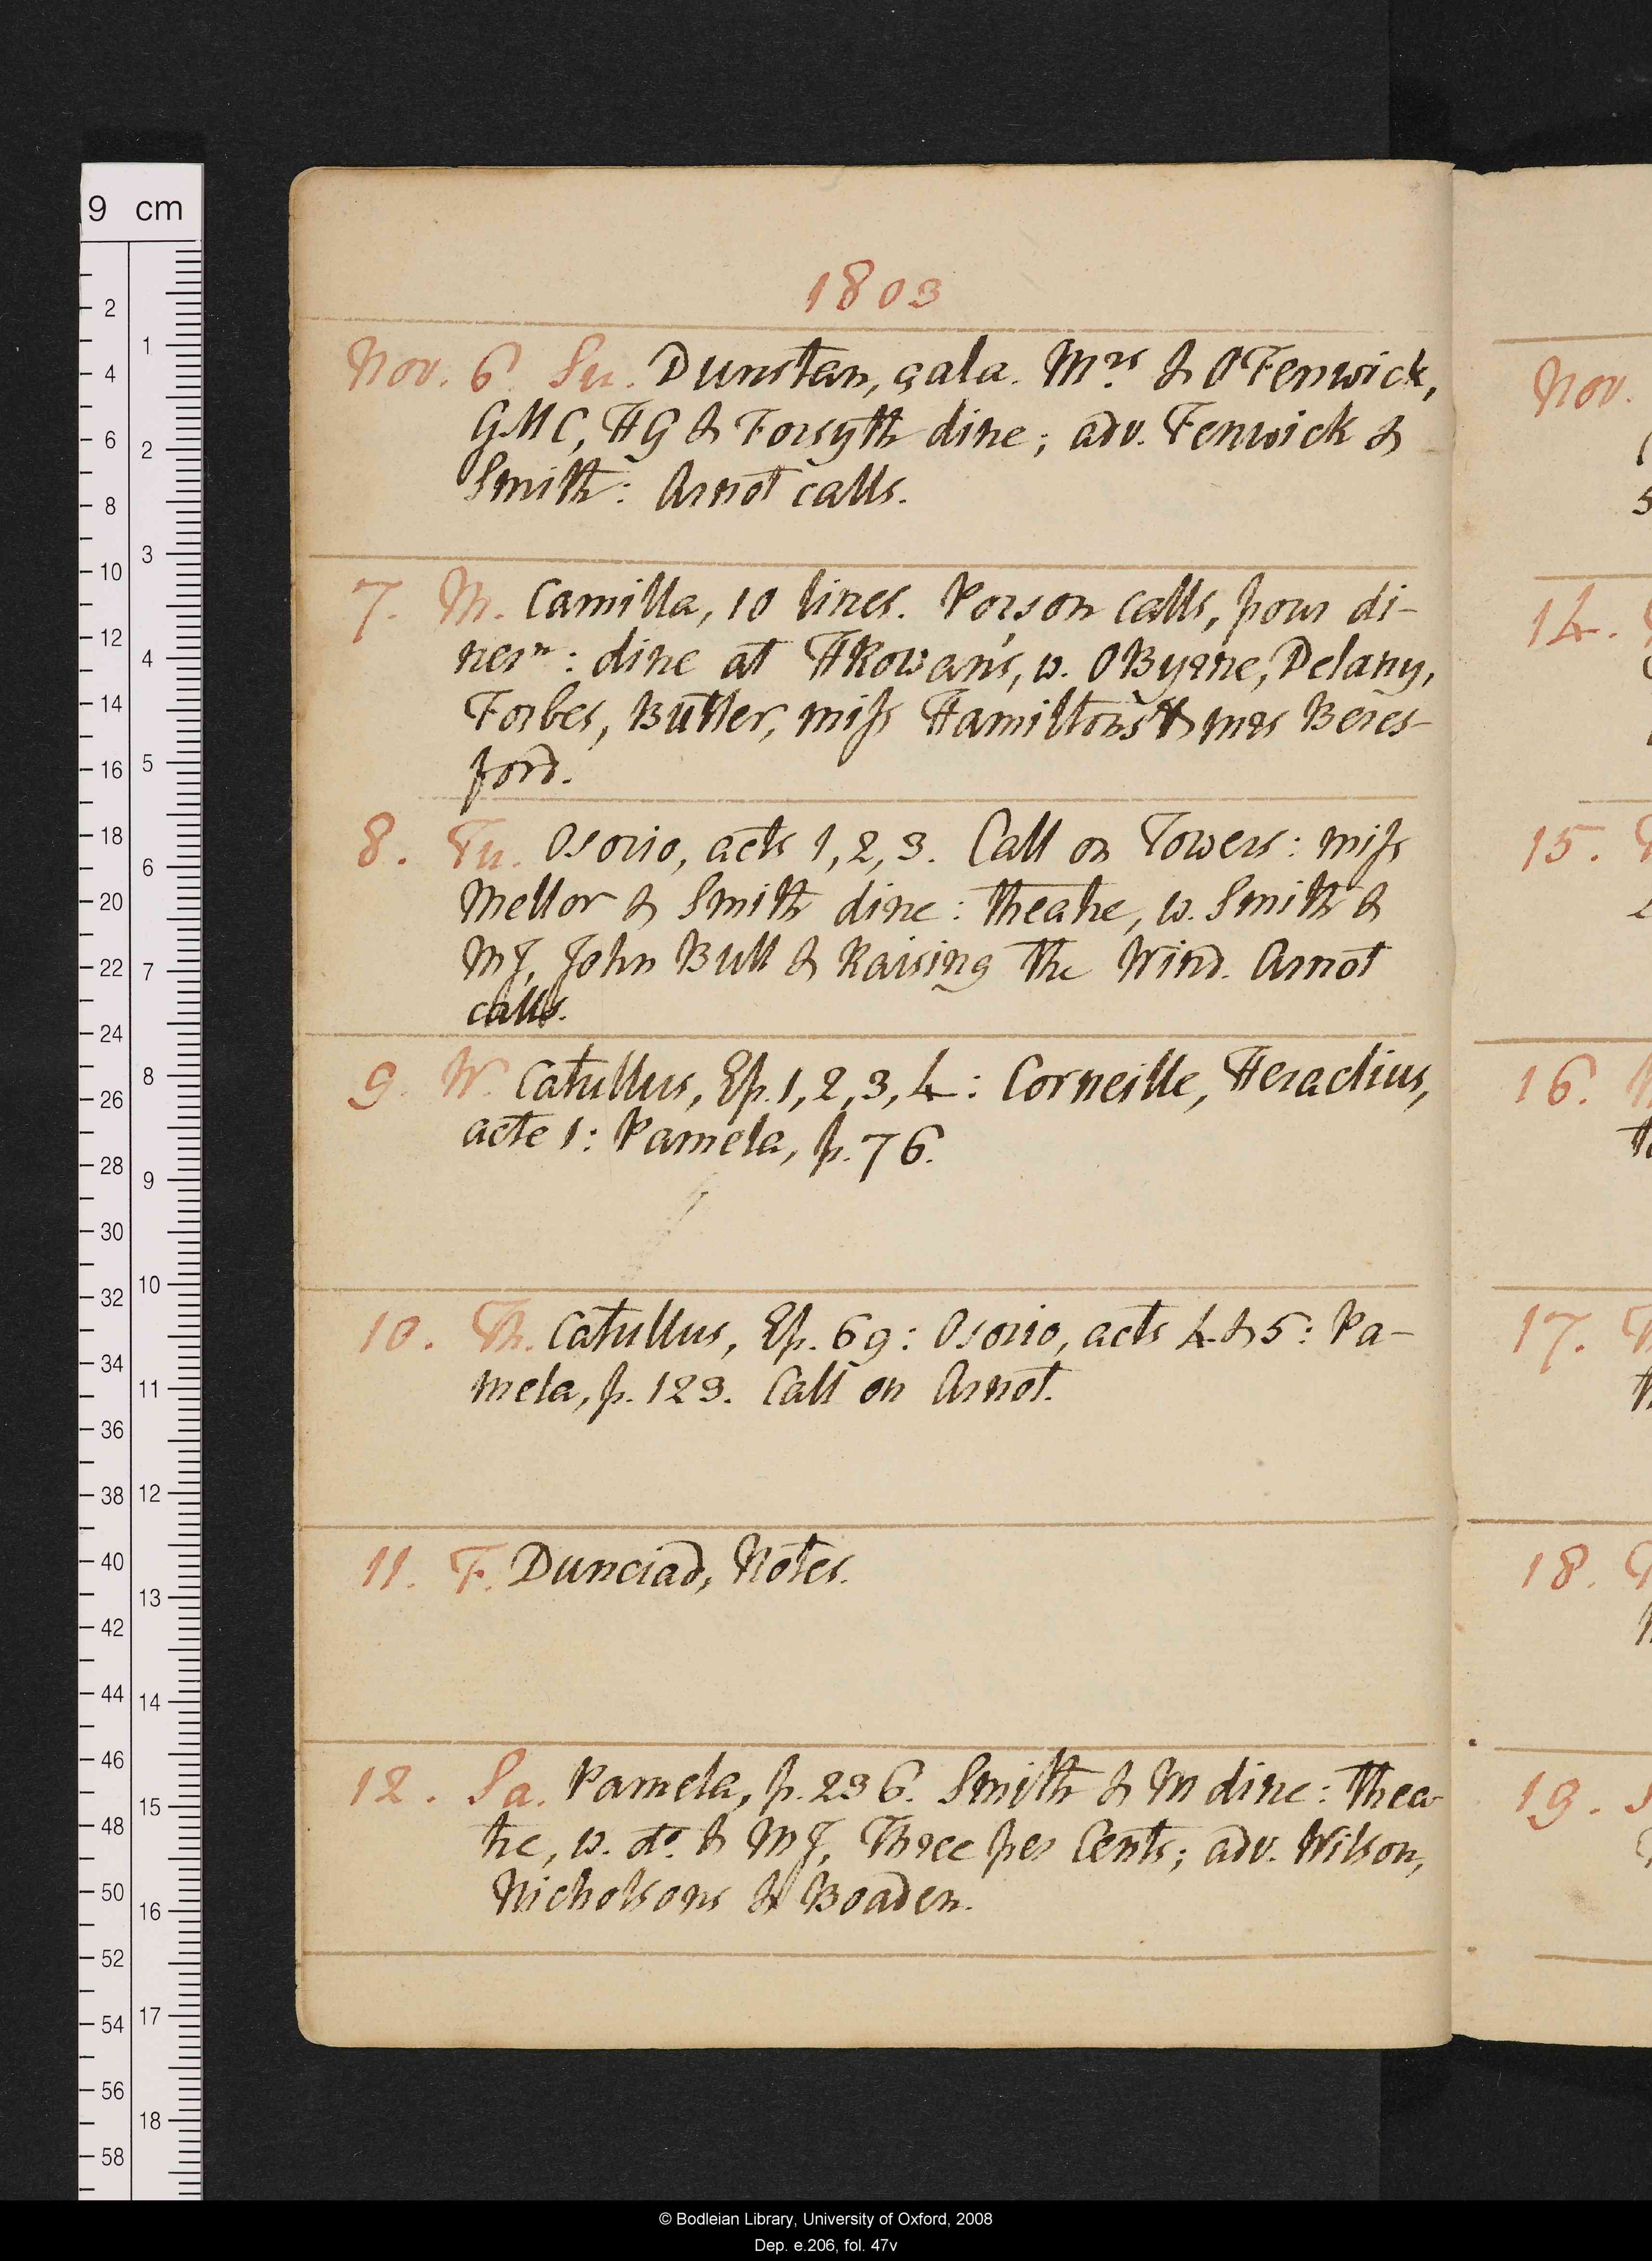 9 cm
1803
Nov. 6. Su. Dunstan, gala. Mrs & O Fenwick,
GMC, HG & Forsyth dine; adv. Fenwick &
Smith: Arnot calls.
7. M. Camilla, 10 lines. Porson calls, pour di-
nern: dine at HRowan's, w. OByrne, Delany,
Forbes, Butler, miss Hamiltons & mrs Beres-
ford.
8. Tu. Osorio, acts 1, 2, 3. Call on Towers: miss
Mellor & Smith dine: theatre, w. Smith &
MJ, John Bull & Raising the Wind. Arnot
calls.
9. W. Catullus, Ep. 1, 2, 3, 4: Corneille, Heraclius,
acte 1: Pamela, p. 76.
10. Th. Catullus, Ep. 69: Osorio, acts 4 & 5: Pa-
mela, p. 123. Call on Arnot.
11. F. Dunciad, Notes.
12. Sa. Pamela, p. 236. Smith & M dine: thea-
tre, w. do. & MJ, Three per Cents; adv. Wilson,
Nicholsons & Boaden.
Nov.
14.
15.
16.
17.
18.
19.
© Bodleian Library, University of Oxford, 2008
Dep. e.206, fol. 47v